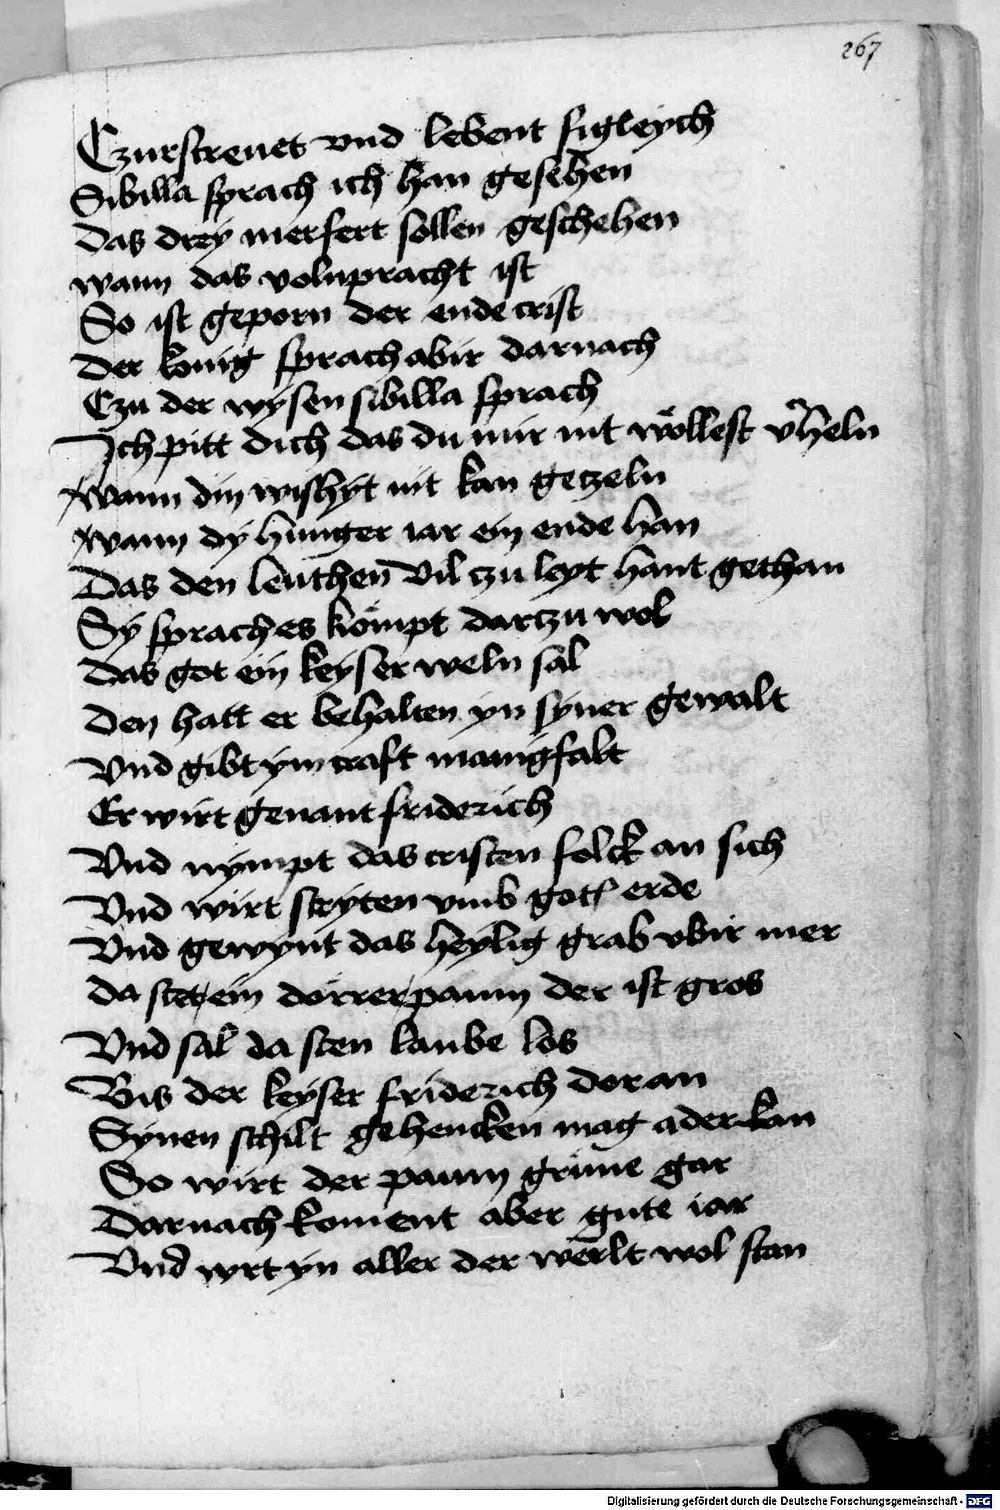 267
Czurstrenet vnd lebent sigleÿch
Sibilla sprach ich han gesehen
Das dreÿ merfert sollen geschehen
wann das volnpracht ist
So ist geporn der ende crist
Der konig sprach abir darnach
Czu der wÿsen sibilla sprach
Ich pitt dich das du mir nit wöllest v̄heln
Wann din wishÿt nit kan getzeln
Wann dÿ hunger iar ein ende han
Das den leuthen vil czu leyt hant gethan
Sÿ sprach es kömpt dartzu wol
Das got ein keÿser weln sal
Den hatt er behalten yn sÿner gewalt
Vnd gibt ÿm craft manigfalt
Er wirt genant friderich
Vnd nÿmpt das cristen folck an sich
Vnd wirt strÿten vmb gotz erde
Vnd gewÿnt das heÿlig grab vbir mer
Da stet ein dörrer paum der ist gros
Vnd sal da sten laube los
Bis der keÿser friderich doran
Sÿnen schilt gehencken mag ader kan
So wirt der paum grüne gar
Darnach koment aber gute iar
Vnd wrt yn aller der werlt wol stan
Digitalisierung gefördert durch die Deutsche Forschungsgemeinschaft - DFG